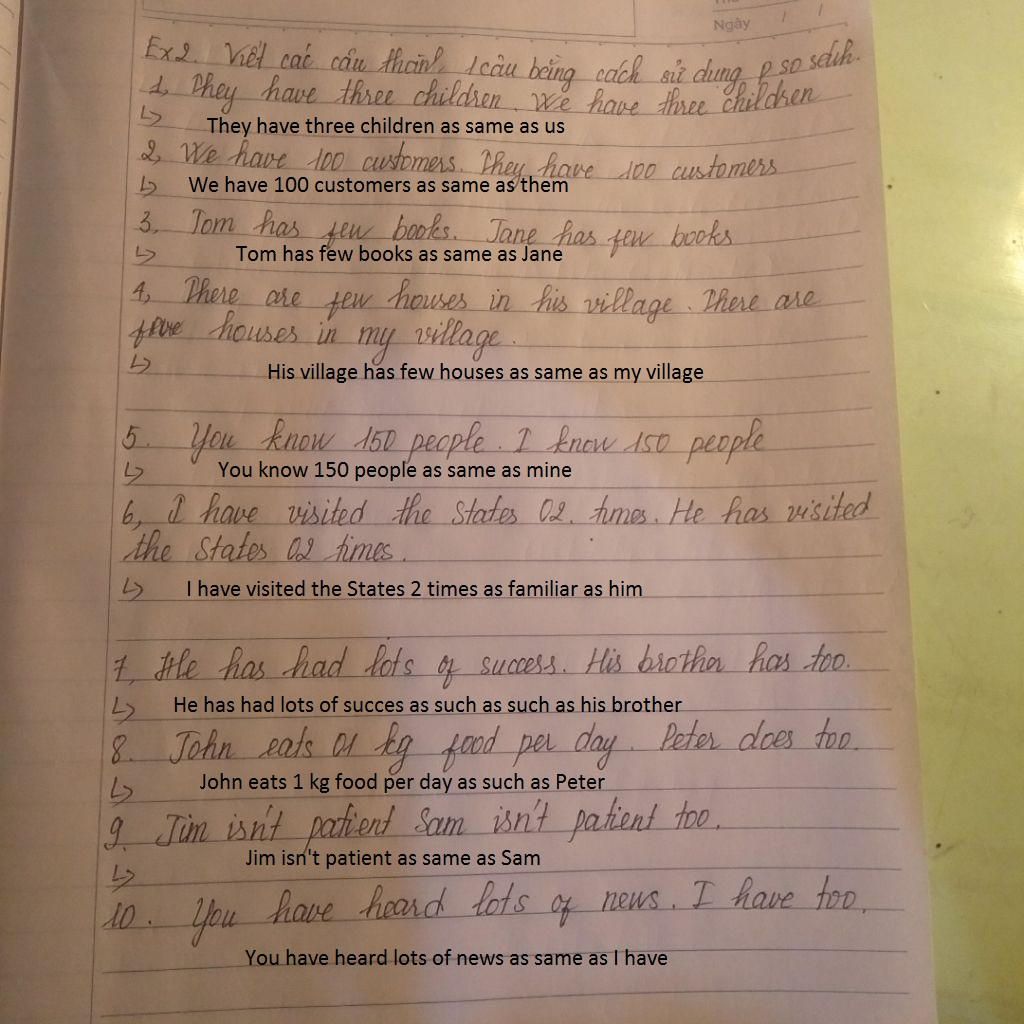 Ngày / /
Ex2. Viết các câu thành 1 câu bằng cách sử dụng p so sánh.
1, They have three children. We have three children
↳ They have three children as same as us
2, We have 100 customers. They have 100 customers
↳ We have 100 customers as same as them
3, Tom has few books. Jane has few books
↳ Tom has few books as same as Jane
4, There are few houses in his village. There are
houses in my village.
↳ His village has few houses as same as my village
5. You know 150 people. I know 150 people
↳ You know 150 people as same as mine
6, I have visited the States 02 times. He has visited
the States 02 times.
↳ I have visited the States 2 times as familiar as him
7, He has had lots of success. His brother has too.
↳ He has had lots of succes as such as such as his brother
8. John eats 01 kg food per day. Peter does too.
↳ John eats 1 kg food per day as such as Peter
9. Jim isn't patient Sam isn't patient too.
↳ Jim isn't patient as same as Sam
10. You have heard lots of news. I have too.
You have heard lots of news as same as I have